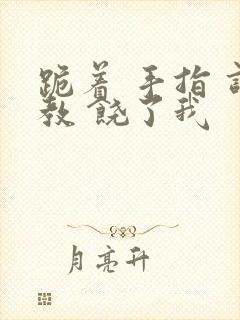 跪着 手指
教 饶了我
月亮升